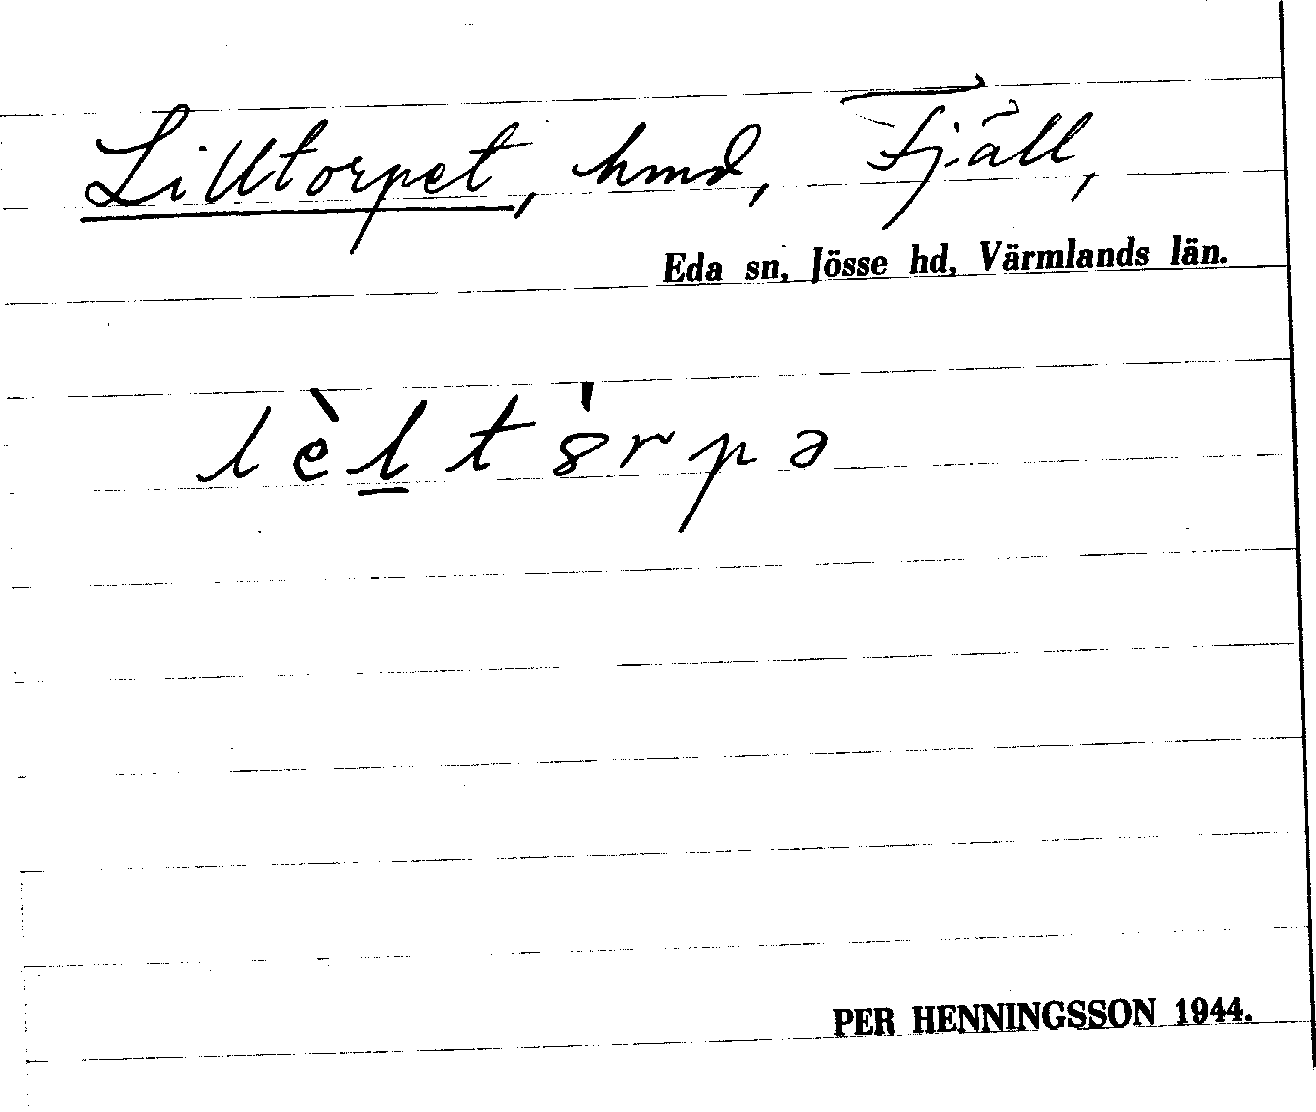 Lilltorpet, hmd, Fjäll,
Eda sn, Jösse hd, Värmlands län.
lèltꞌ8rpə
PER HENNINGSSON 1944.